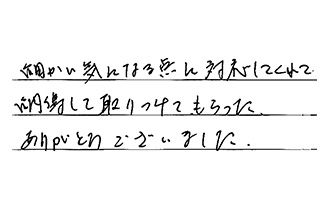 細かい気になる点に対応してくれて
納得して取りつけてもらった。
ありがとうございました。